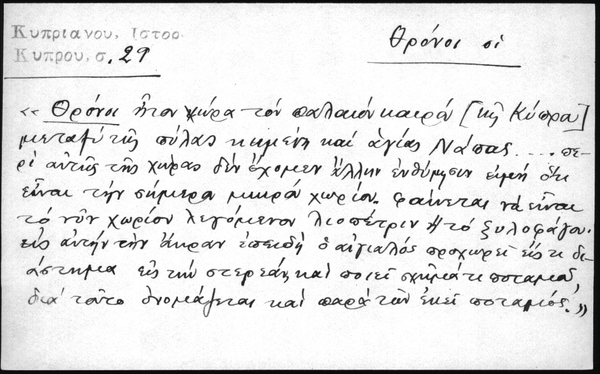 Κυπριανου, Ιστορ.
Κυπρου, σ. 29
Θρόνοι οἱ
«Θρόνοι ἦτον χώρα τὸν παλαιὸν καιρὸ [τῆς Κύπρου]
μεταξὺ τῆς πύλας κειμένη καὶ ἁγίας Νάπας.... πε-
ρὶ αὐτῆς τῆς χώρας δὲν ἔχομεν ἄλλην ἐνθύμησιν εἰμὴ ὅτι
εἶναι τὴν σήμερον μικρὸ χωρίον. φαίνεται νὰ εἶναι
τὸ νῦν χωρίον λεγόμενον Λιοπέτριν ἢ τὸ ξυλοφάγου.
εἰς αὐτὴν τὴν ἄκραν ἐπειδὴ ὁ αἰγιαλὸς προχωρεῖ εἰς τι δι-
άστημα εἰς τὴν στερεάν, καὶ ποιεῖ σχῆμά τι ποταμοῦ,
διὰ τοῦτο ὀνομάζεται καὶ παρὰ τῶν ἐκεῖ ποταμός.»